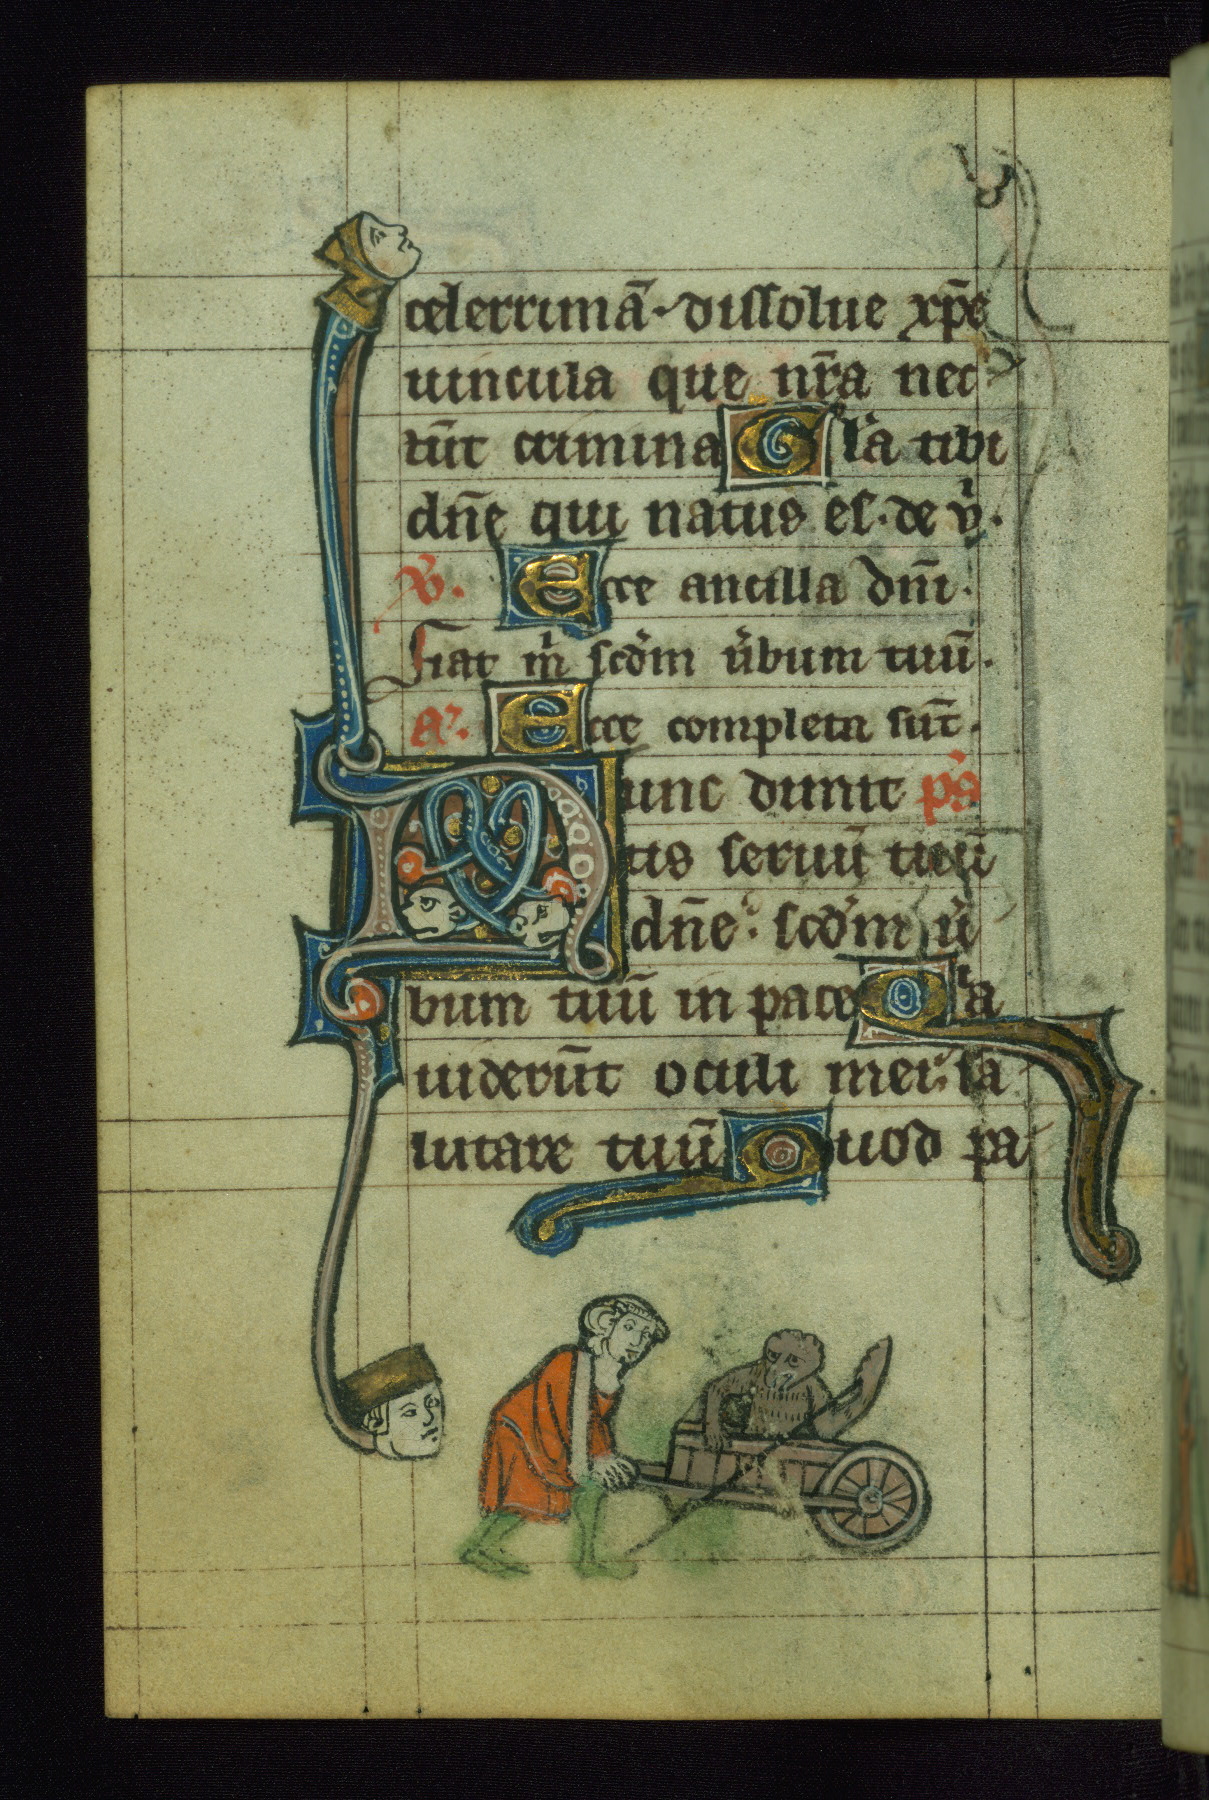 celerrimā. dissolue xp̄e
uincula que nr̄a nec
tūt crimina Gl'a tibi
dn̄e qui natus es. de v̓.
V̓. Ecce ancilla dn̄i.
Fiat m̓ scd̓m u̓bum tuū.
A̓. Ecce completa sūt.
Nunc dimit ps̓
tis seruū tuū
dn̄e: scd̓m u̓
bum tuū in pace Q'a
uiderūt oculi mei: sa
lutare tuū Quod pa